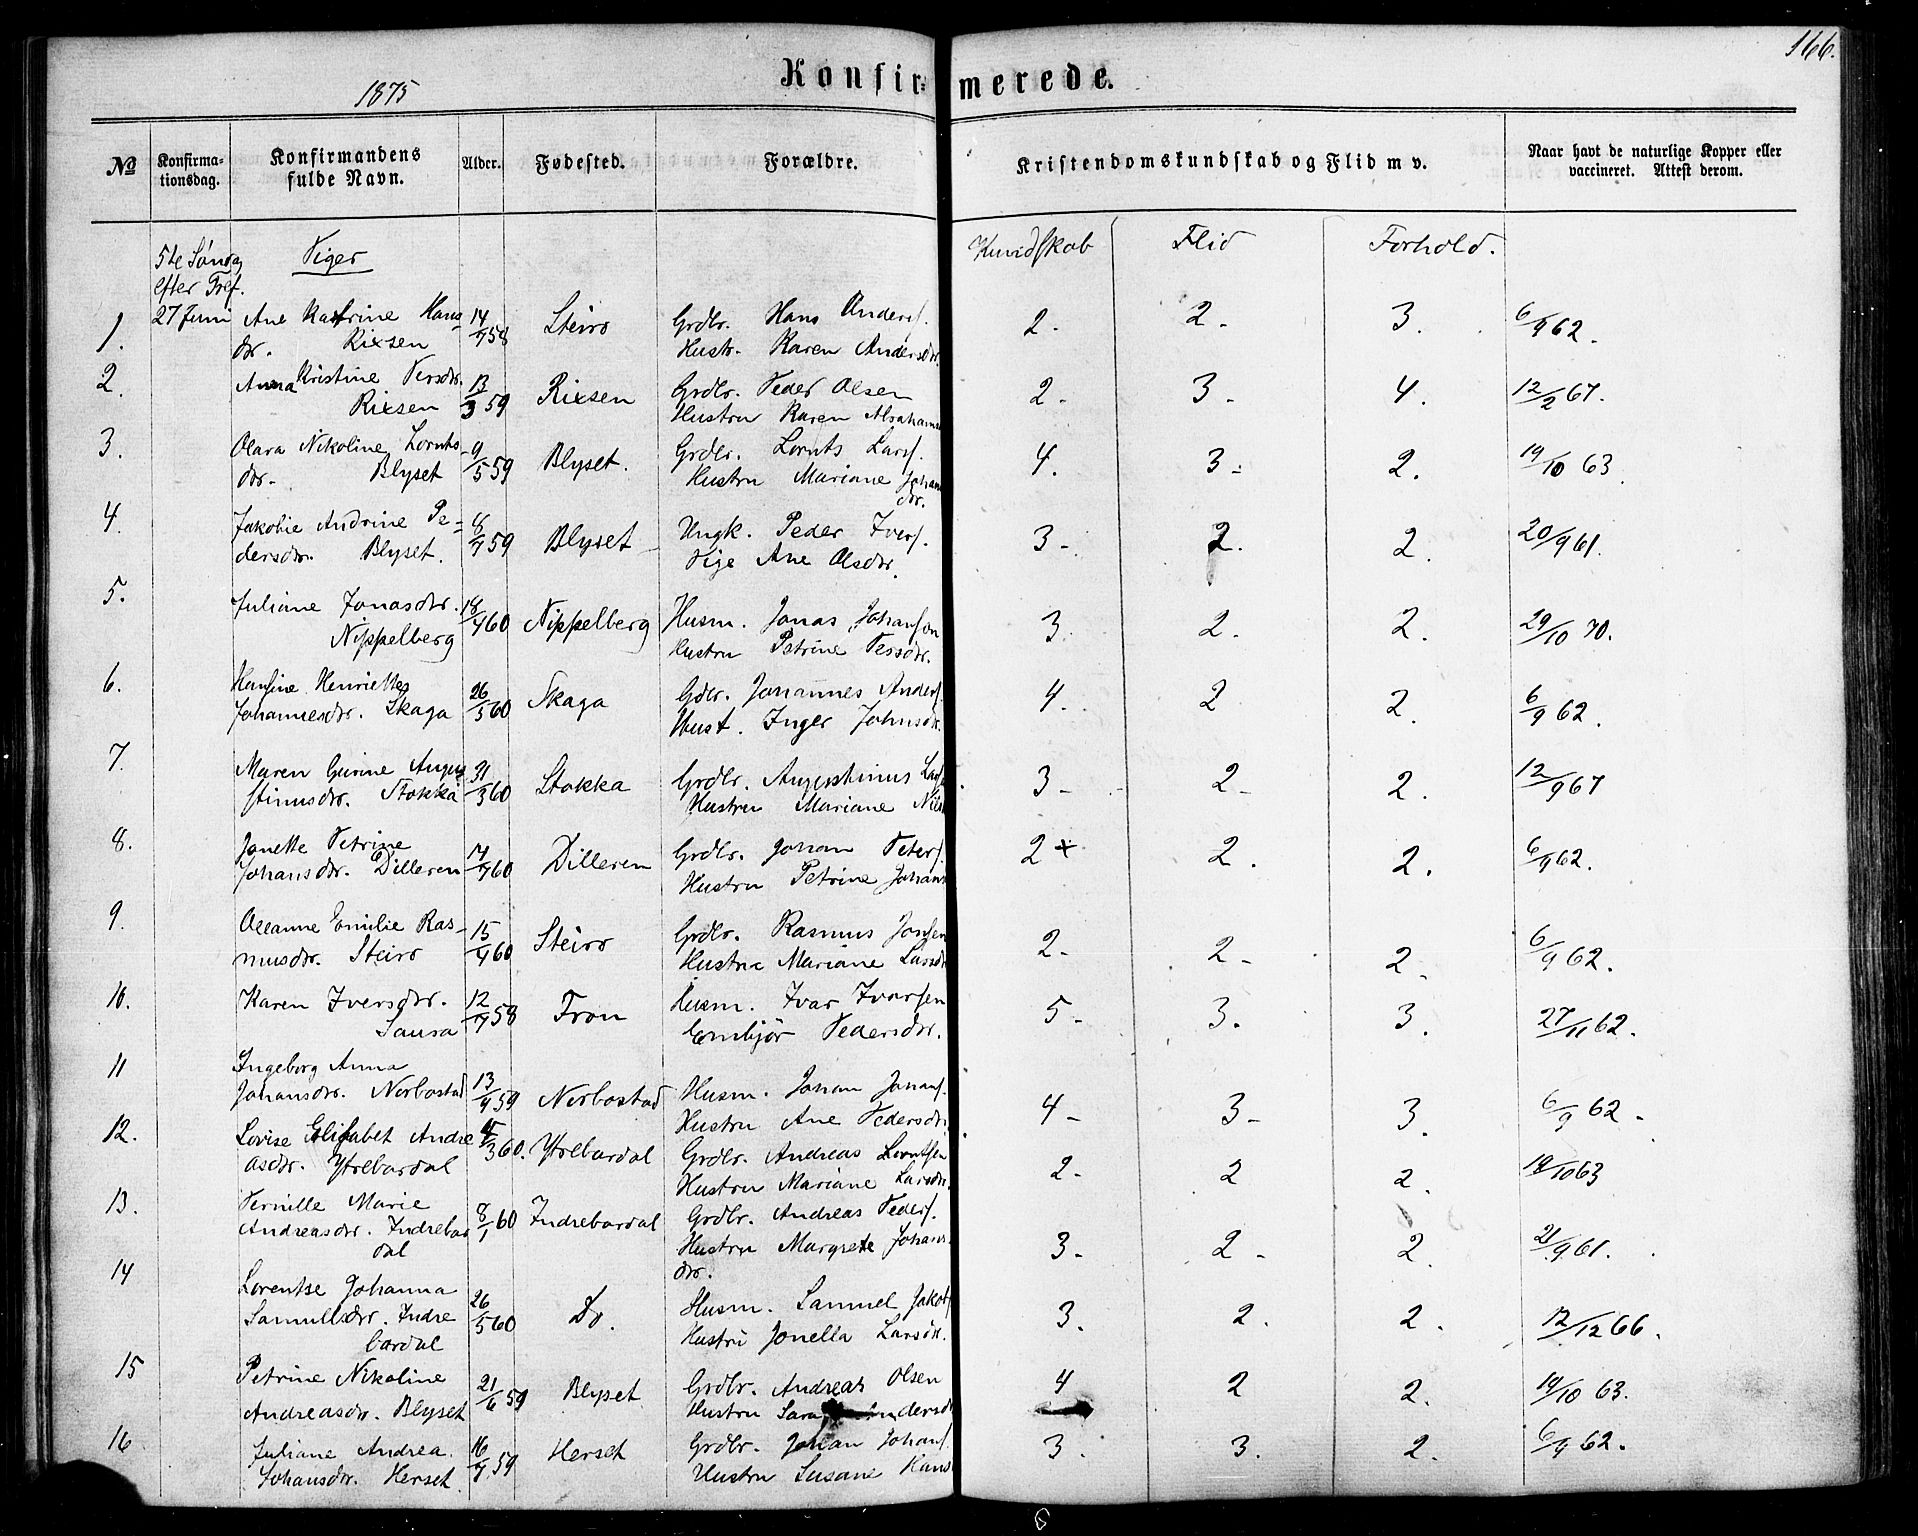 166.
1875
Konfir- merede.
№ Konfirma- Konfirmandens Alder. Fødested. Forældre. Kristendomskundskab og Flid m v. Naar havt de naturlige Kopper eller
tionsdag. fulde Navn. vaccineret. Attest derom.
5te Søndag Piger Kundskab Flid Forhold.
efter Tref.
1. 27 Juni Ane Katrine Hans 14/7 58 Steiro Grdbr. Hans Anders. 2. 2. 3. 6/9 62.
dr. Rixsen Hustr. Karen Andersdr.
2. Anna Kristine Persdr. 13/3 59 Rixsen Grdbr. Peder Olsen 2. 3. 4. 12/2 67.
Rixsen Hustru Karen Abraham
3. Olara Nikoline Lornts 9/5 59 Blyset. Grdbr. Lornts Lars. 4. 3. 2. 19/10 63.
dr. Blyset Hustru Mariane Johan
dr.
4. Jakobie Andrine Pe- 8/7 59 Blyset Ungk. Peder Ivers. 3. 2. 2. 20/9 61.
dersdr. Blyset. Pige Ane Olsdr.
5. Juliane Jonasdr. 18/4 60 Nippelberg Husm. Jonas Johanson 3. 2. 2. 29/10 70.
Nippelberg Hustru Petrine Persdr.
6. Hansine Henriettes 26/5 60 Skaga Gdbr. Johannes Anders. 4. 2 2. 6/9 62.
Johannesdr. Skaga Hust. Inger Johnsdr.
7. Maren Gurine Augus 31/3 60 Stokka Grdbr. Augustinus Lars 3. 2. 2. 12/9 67
stinusdr. Stokka Hustru Mariane Nils
8. Jonette Petrine 14/4 60 Dilleren Grdbr. Johan Peters. 2+ 2. 2. 6/9 62.
Johansdr. Dilleren Hustru Petrine Johans
9. Oleanne Emilie Ras- 15/4 60 Steiro Grdbr. Rasmus Jonsen 2. 2. 2. 6/9 62.
musdr. Steiro Hustru Mariane Larsdr
10. Karen Iversdr. 12/7 58 Fron Husm. Ivar Ivarsen 5. 3. 3. 27/11 62.
Sausa Embjør Pedersdr.
11 Ingeborg Anna
Johansdr. Norbostad 13/9 59 Norbostad Husm. Johan Johans. 4. 3. 3. 6/9 62.
Hustru Ane Pedersdr.
12. Lovise Elisabet Andre /3 60. Ytrebardal Grdbr. Andreas Lorntsen 2. 2 2. 19/10 63
asdr. Ytrebardal Hustru Mariane Larsdr.
13. Pernille Marie 8/1 60 Indrebardal Grdbr. Andreas Peders. 3. 2. 2. 21/9 61.
Andreasdr. Indrebar Hustru Margrete Johans
dal dr.
14 Lorentse Johanna 26/5 60 Do. Husm. Samuel Jakobs 3. 2. 2. 12/12 66.
Samuelsdr. Indre Hustru Jonella Larsdr.
bardal
15 Petrine Nikoline 21/6 59 Blyset Grdbr. Andreas Olsen 4 2 2. 19/10 63.
Andreasdr. Blyset Hustru Sara Andersdr
16 Juliane Andrea 16/7 59 Herset Grdbr. Johan Johans. 3. 3. 2. 6/9 62.
Johansdr. Herset. Hustru Susane Hans